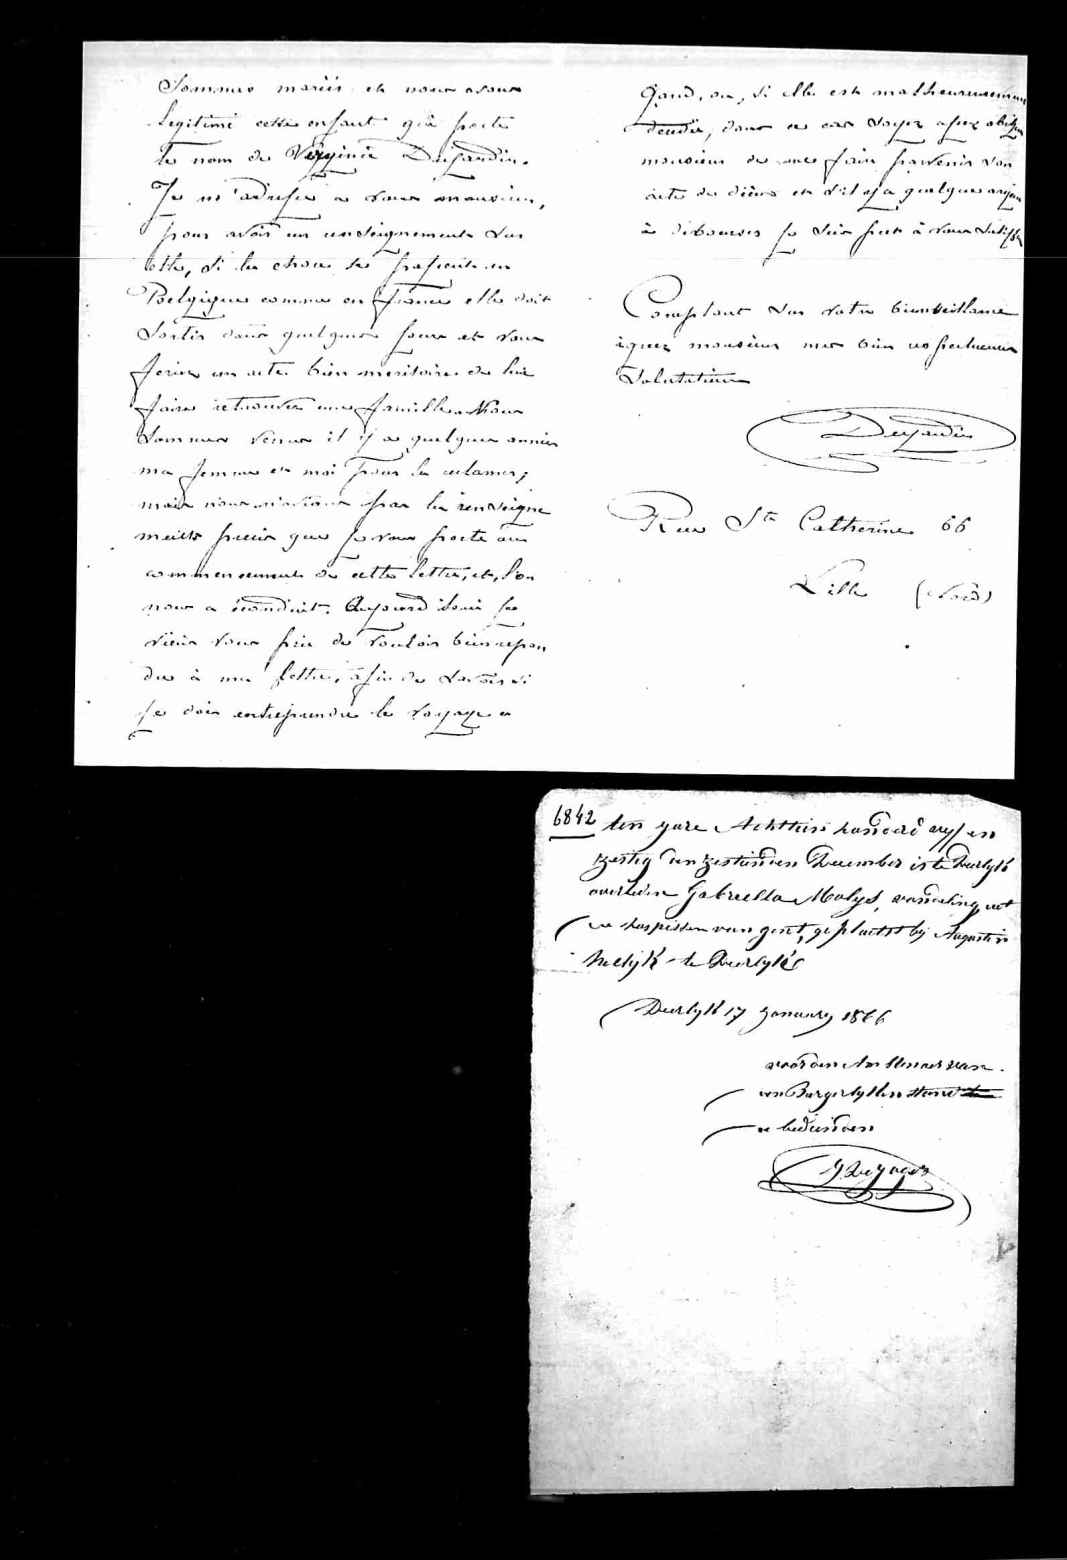 Sommes mariés et nous avons
légitimé cette enfant qui porte
le nom de Virginie Dujardin.
Je m'adresse à vous monsieur,
pour avoir un renseignement sur
elle, si les choses se passent en
Belgique comme en France elle doit
sortir dans quelques jours et vous
feriez un acte bien meritoire de lui
faire retrouver une famille. Nous
sommes venus il y a quelques années
ma femme et moi pour la reclamer,
mais nous n'avions pas les renseigne
ments précis que je vous porte au
commencement de cette lettre, et l'on
nous a éconduit. Aujourd'hui je
viens vous prie de vouloir bien repon
dre à ma lettre, afin de savoir si
je dois entreprendre le voyage a
Gand, ou, si elle est malheureusement
dans ce cas soyez assez obligeant
monsieur de me faire parvenir son
acte de décès et s'il y a quelque argent
à débourser je suis pret à vous
Comptant sur votre bienveillance
monsieur mes bien respectueuses
Salutations
Dujardin
Rue Ste Catherine 66
Lille (Nord)
6842
ten jare Achttien honderd vyf en
zestig den December is te Deerlyk
overleden Gabriella Malys, vondeling uit
de hospicien van gent, geplaetst by Augustin
te Deerlyk
Deerlyk 17 January 1866
voor den Ambtenaer van
den Burgerlyken stand
de bediende